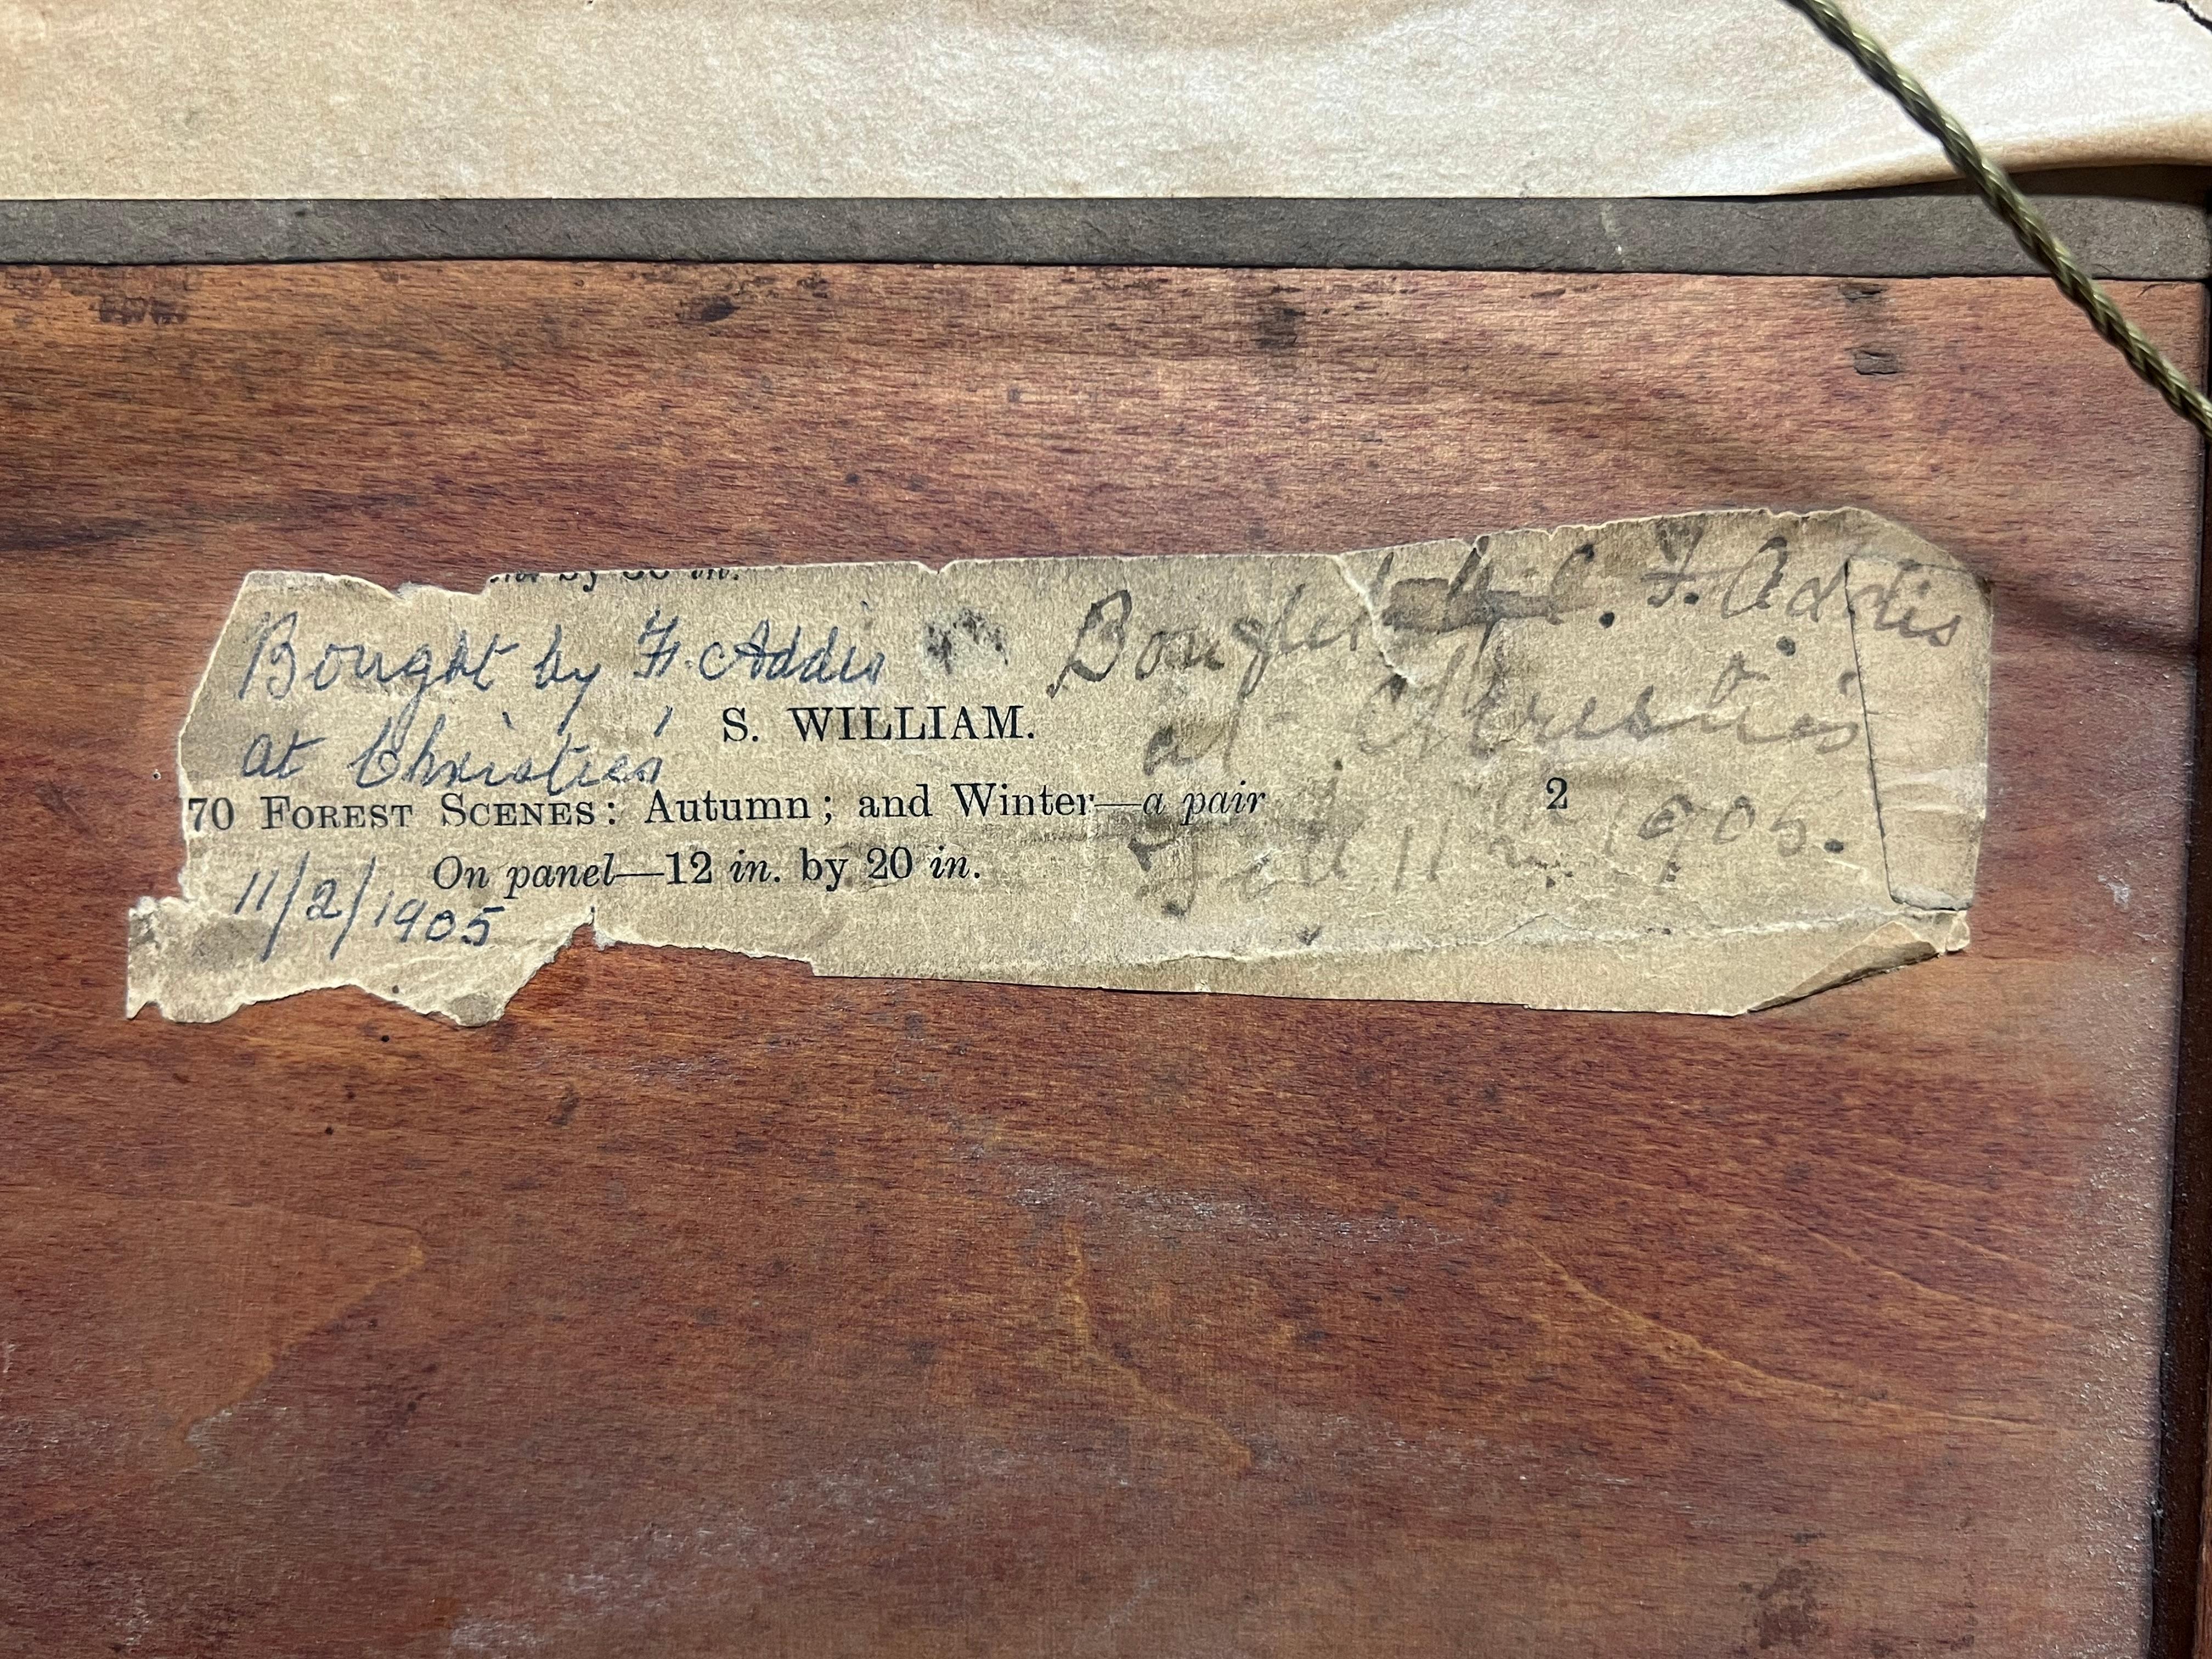 by 30 in.
Bought by F. Addis
at Christies'
S. WILLIAM.
70 FOREST SCENES: Autumn; and Winter—a pair 2
On panel—12 in. by 20 in.
11/2/1905
Bought F. Addis
at
11th 1905.